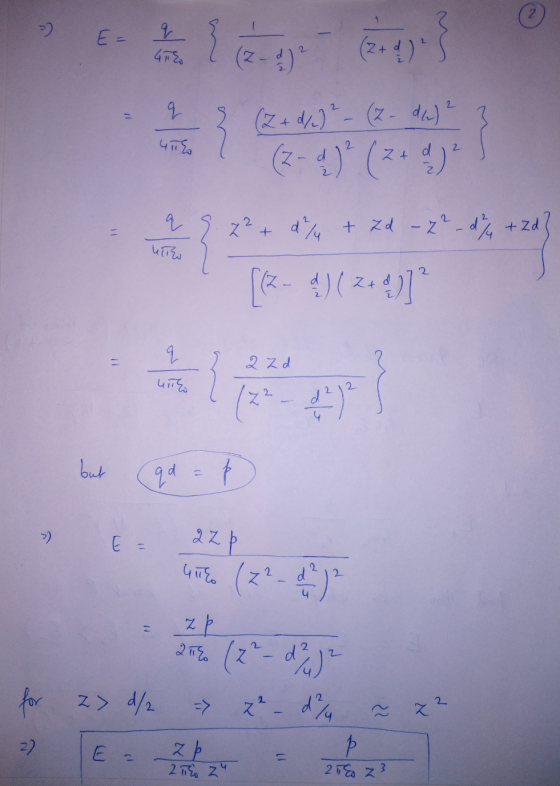 2
=> E = q/4πε₀ { 1/(z - d/2)² - 1/(z + d/2)² }
= q/4πε₀ { (z + d/2)² - (z - d/2)² / (z - d/2)² (z + d/2)² }
= q/4πε₀ { z² + d²/4 + zd - z² - d²/4 + zd / [(z - d/2)(z + d/2)]² }
= q/4πε₀ { 2zd / (z² - d²/4)² }
but qd = p
=> E = 2zp / 4πε₀ (z² - d²/4)²
= zp / 2πε₀ (z² - d²/4)²
for z > d/2 => z² - d²/4 ≈ z²
=> E = zp / 2πε₀ z⁴ = p / 2πε₀ z³